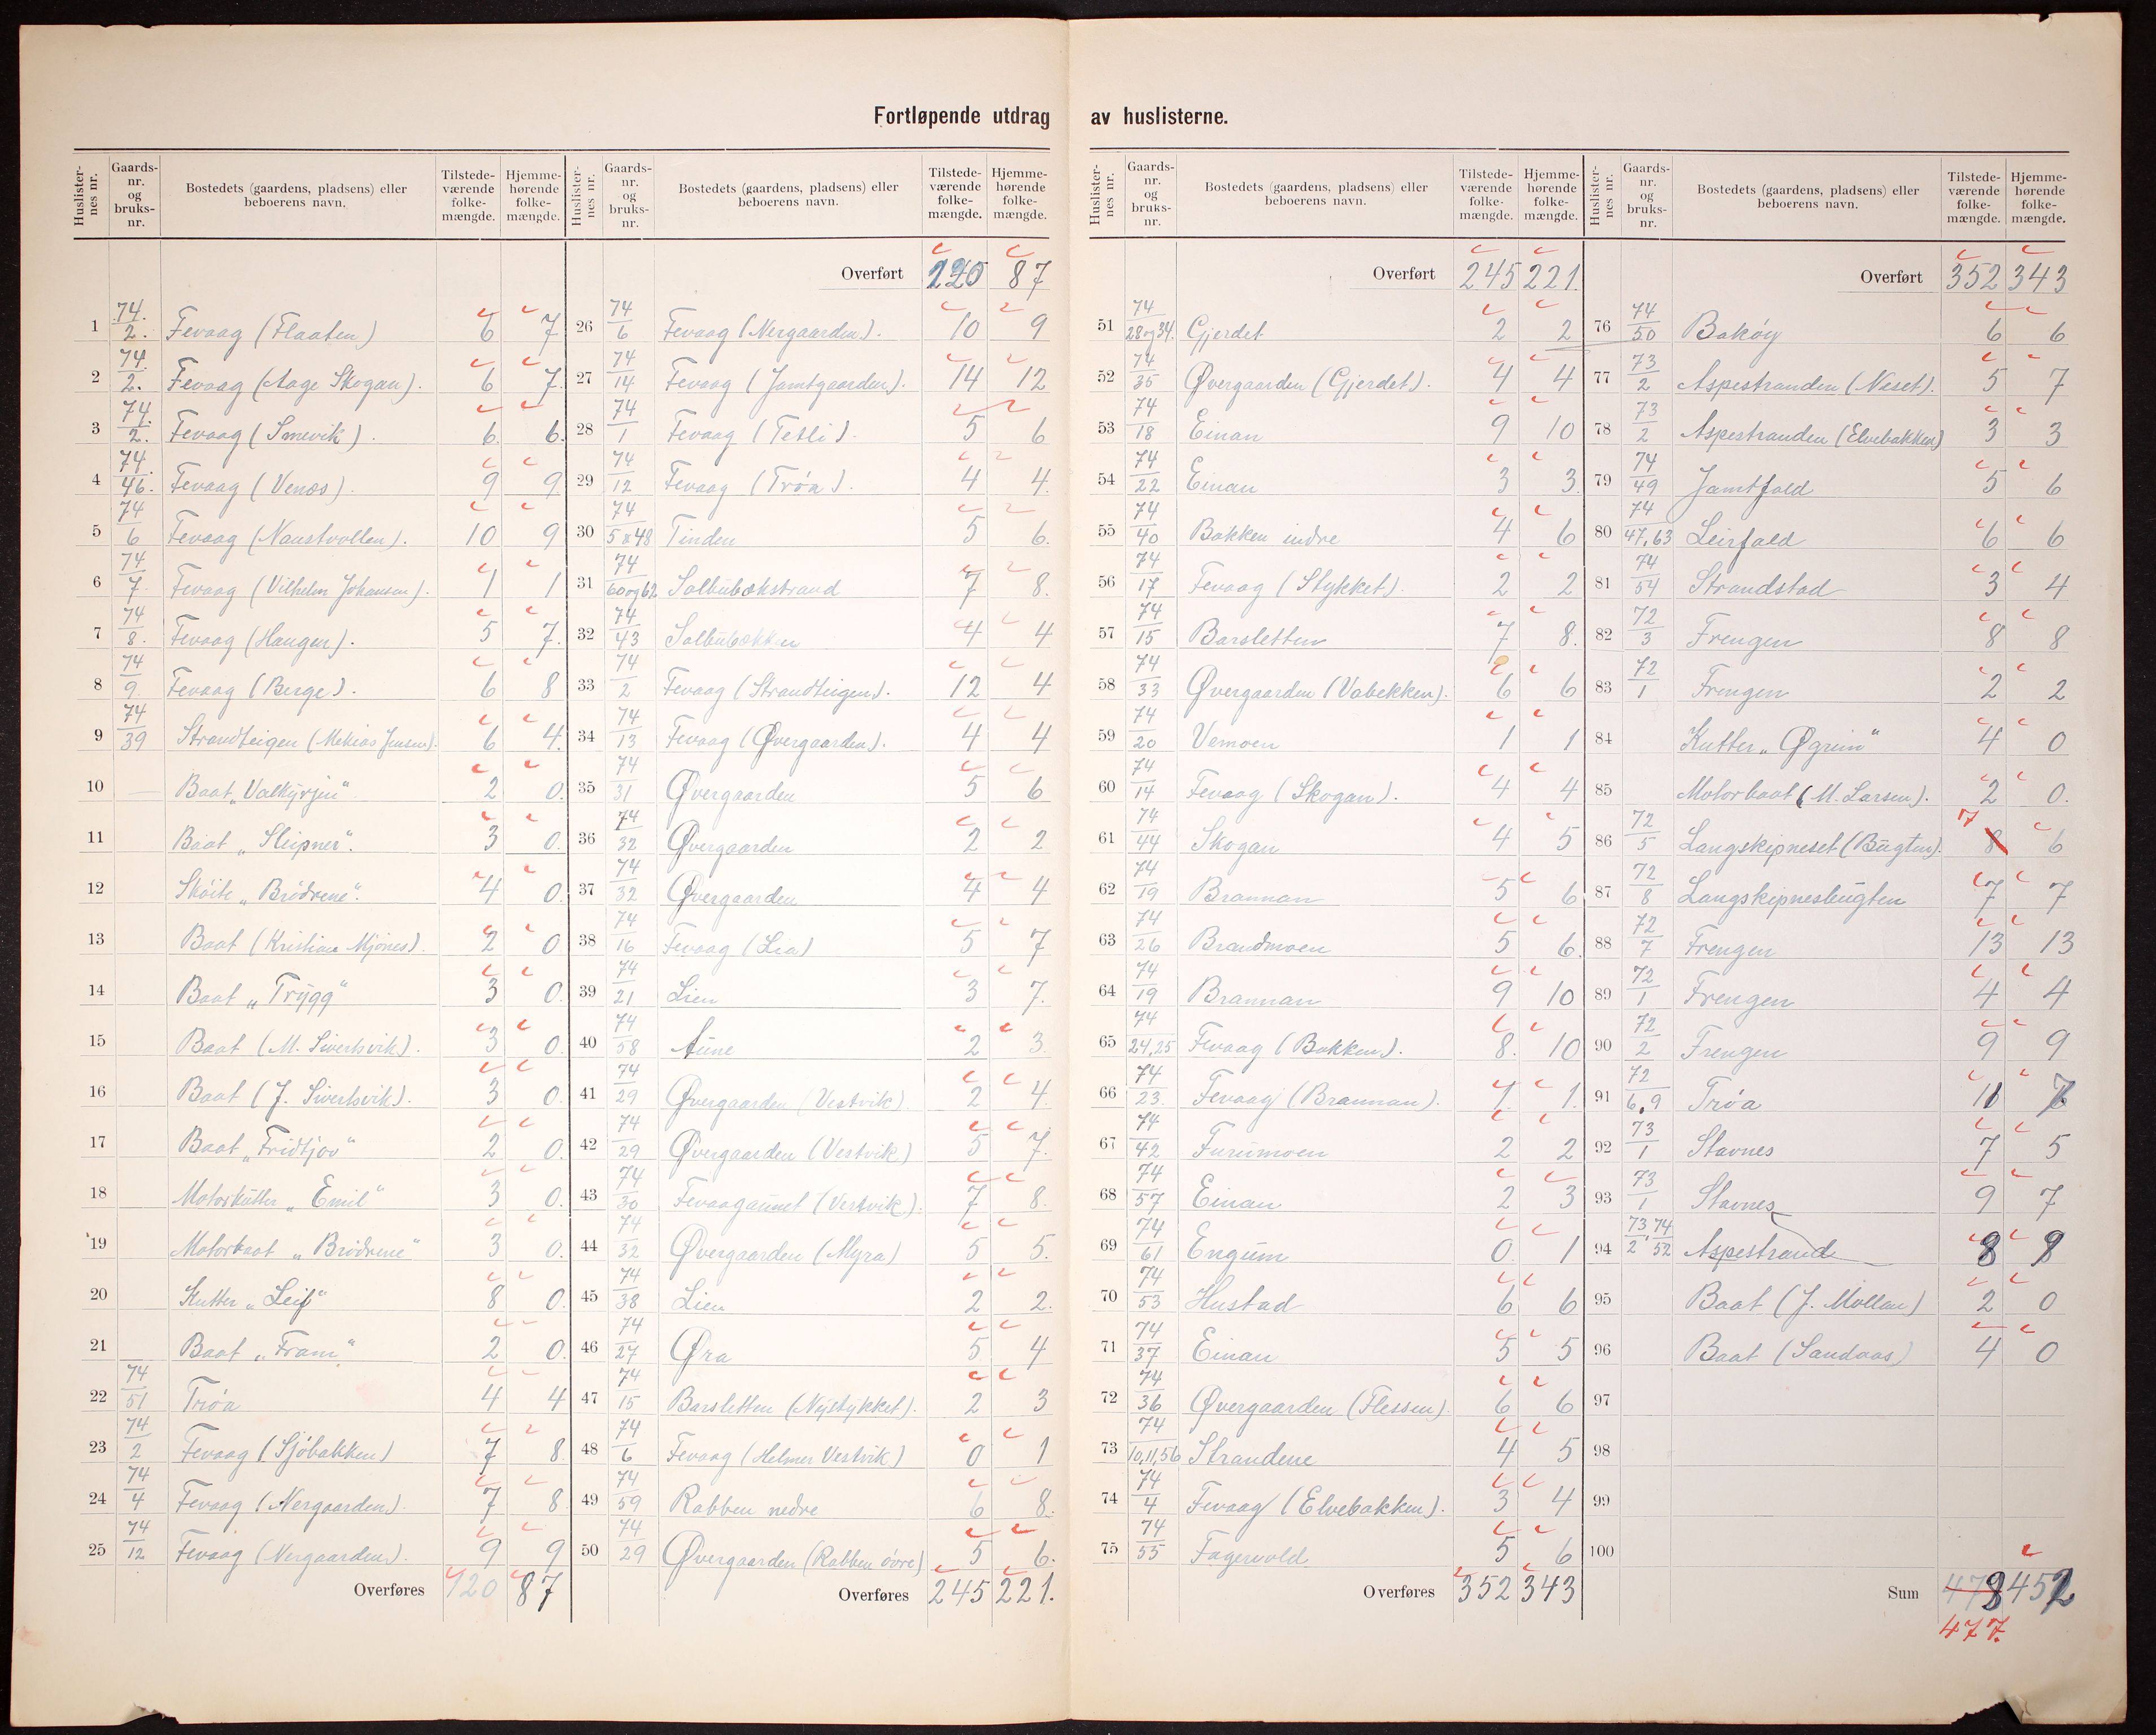 Fortløpende utdrag av huslisterne.
Huslisternes nr. | Gaards-nr. og bruks-nr. | Bostedets (gaardens, pladsens) eller beboerens navn. | Tilstedeværende folkemængde. | Hjemmehørende folkemængde.
1 | 74./2. | Fevaag (Flaaten) | 6 | 7
2 | 74./2. | Fevaag (Aage Skogan). | 6 | 7.
3 | 74./2. | Fevaag (Smevik). | 6. | 6.
4 | 74./46. | Fevaag (Venos). | 9 | 9
5 | 74/6 | Fevaag (Naustvollen). | 10 | 9
6 | 74/7. | Fevaag (Vilhelm Johansen). | 1 | 1
7 | 74/8. | Fevaag (Haugen). | 5 | 7.
8 | 74/9. | Fevaag (Berge). | 6 | 8
9 | 74/39 | Strandteigen (Mekias Jensen). | 6 | 4.
10 | Baat „Valkyrjen" | 2 | 0.
11 | Baat „Sleipner". | 3 | 0.
12 | Skøite „Brødrene". | 4 | 0.
13 | Baat (Kristian Mjønes). | 2 | 0
14 | Baat „Trygg" | 3 | 0.
15 | Baat (M. Sivertsvik). | 3 | 0.
16 | Baat (J. Sivertsvik). | 3 | 0.
17 | Baat „Fridtjov" | 2 | 0.
18 | Motorkutter „Emil" | 3 | 0.
19 | Motorbaat „Brødrene" | 3 | 0.
20 | Kutter „Leif" | 8 | 0.
21 | Baat „Fram" | 2 | 0.
22 | 74/51 | Trøa | 4 | 4
23 | 74/2 | Fevaag (Sjøbakken) | 7 | 8.
24 | 74/4 | Fevaag (Nergaarden). | 7 | 8
25 | 74/12 | Fevaag (Nergaarden). | 9 | 9
Overføres 120 87
Huslisternes nr. | Gaards-nr. og bruks-nr. | Bostedets (gaardens, pladsens) eller beboerens navn. | Tilstedeværende folkemængde. | Hjemmehørende folkemængde.
Overført 120 87
26 | 74/6 | Fevaag (Nergaarden). | 10 | 9
27 | 74/14 | Fevaag (Jamtgaarden). | 14 | 12
28 | 74/1 | Fevaag (Tetli). | 5 | 6
29 | 74/12 | Fevaag (Trøa). | 4 | 4.
30 | 74/5 & 48 | Tinden | 5 | 6.
31 | 74/60 og 62 | Solbubækstrand | 7 | 8.
32 | 74/43 | Solbubækken | 4 | 4
33 | 74/2 | Fevaag (Strandteigen). | 12 | 4
34 | 74/13 | Fevaag (Øvergaarden). | 4 | 4
35 | 74/31 | Øvergaarden | 5 | 6
36 | 74/32 | Øvergaarden | 2 | 2
37 | 74/32 | Øvergaarden | 4 | 4
38 | 74/16 | Fevaag (Lia) | 5 | 7
39 | 74/21 | Lien | 3 | 7.
40 | 74/58 | Aune | 2 | 3.
41 | 74/29 | Øvergaarden (Vestvik) | 2 | 4.
42 | 74/29 | Øvergaarden (Vestvik) | 5 | 7.
43 | 74/30 | Fevaagaunet (Vestvik). | 7 | 8.
44 | 74/32 | Øvergaarden (Myra) | 5 | 5.
45 | 74/38 | Lien | 2 | 2.
46 | 74/27 | Øra | 5 | 4
47 | 74/15 | Barsletten (Nystykket). | 2 | 3
48 | 74/6 | Fevaag (Helmer Vestvik) | 0 | 1
49 | 74/59 | Rabben nedre | 6 | 8.
50 | 74/29 | Øvergaarden (Rabben övre) | 5 | 6.
Overføres 245 221.
Huslisternes nr. | Gaards-nr. og bruks-nr. | Bostedets (gaardens, pladsens) eller beboerens navn. | Tilstedeværende folkemængde. | Hjemmehørende folkemængde.
Overført 245 221.
51 | 74/28 og 34. | Gjerdet | 2 | 2
52 | 74/35 | Øvergaarden (Gjerdet). | 4 | 4
53 | 74/18 | Einan | 9 | 10
54 | 74/22 | Einan | 3 | 3.
55 | 74/40 | Bakken indre | 4 | 6
56 | 74/17 | Fevaag (Stykket). | 2 | 2
57 | 74/15 | Barsletten | 7 | 8.
58 | 74/33 | Øvergaarden (Vabekken). | 6 | 6
59 | 74/20 | Vemoen | 1 | 1
60 | 74/14 | Fevaag (Skogan). | 4 | 4
61 | 74/44 | Skogan | 4 | 5
62 | 74/19 | Brannan | 5 | 6
63 | 74/26 | Brandmoen | 5 | 6.
64 | 74/19 | Brannan | 9 | 10
65 | 74/24,25 | Fevaag (Bakken). | 8. | 10
66 | 74/23. | Fevaag (Brannan). | 1. | 1.
67 | 74/42 | Furumoen | 2 | 2
68 | 74/57 | Einan | 2 | 3
69 | 74/61 | Engum | 0. | 1
70 | 74/53 | Hustad | 6 | 6
71 | 74/37 | Einan | 5 | 5
72 | 74/36 | Øvergaarden (Flessen). | 6 | 6
73 | 74/10,11,56 | Strandene | 4 | 5
74 | 74/4 | Fevaag (Elvebakken). | 3 | 4
75 | 74/55 | Fagervold | 5 | 6
Overføres 352 343
Huslisternes nr. | Gaards-nr. og bruks-nr. | Bostedets (gaardens, pladsens) eller beboerens navn. | Tilstedeværende folkemængde. | Hjemmehørende folkemængde.
Overført 352 343
76 | 74/50 | Bakøy | 6 | 6
77 | 73/2 | Aspestranden (Neset). | 5 | 7
78 | 73/2 | Aspestranden (Elvebakken) | 3 | 3
79 | 74/49 | Jamtfald | 5 | 6
80 | 74/47,63 | Leirfald | 6 | 6
81 | 74/54 | Strandstad | 3 | 4
82 | 72/3 | Frengen | 8 | 8
83 | 72/1 | Frengen | 2 | 2
84 | Kutter „Øgrim" | 4 | 0
85 | Motorbaat (M. Larsen). | 2 | 0.
86 | 72/5 | Langskipneset (Bugten). | 8 7 | 6
87 | 72/8 | Langskipnesbugten | 7 | 7
88 | 72/7 | Frengen | 13 | 13
89 | 72/1 | Frengen | 4 | 4
90 | 72/2 | Frengen | 9 | 9
91 | 72/6,9 | Trøa | 11 | 7
92 | 73/1 | Stavnes | 7 | 5
93 | 73/1 | Stavnes | 9 | 7
94 | 73/2, 74/52 | Aspestrand | 8 | 9
95 | Baat (J. Mollan) | 2 | 0
96 | Baat (Sandaas) | 4 | 0
97
98
99
100
Sum 478 452
477.